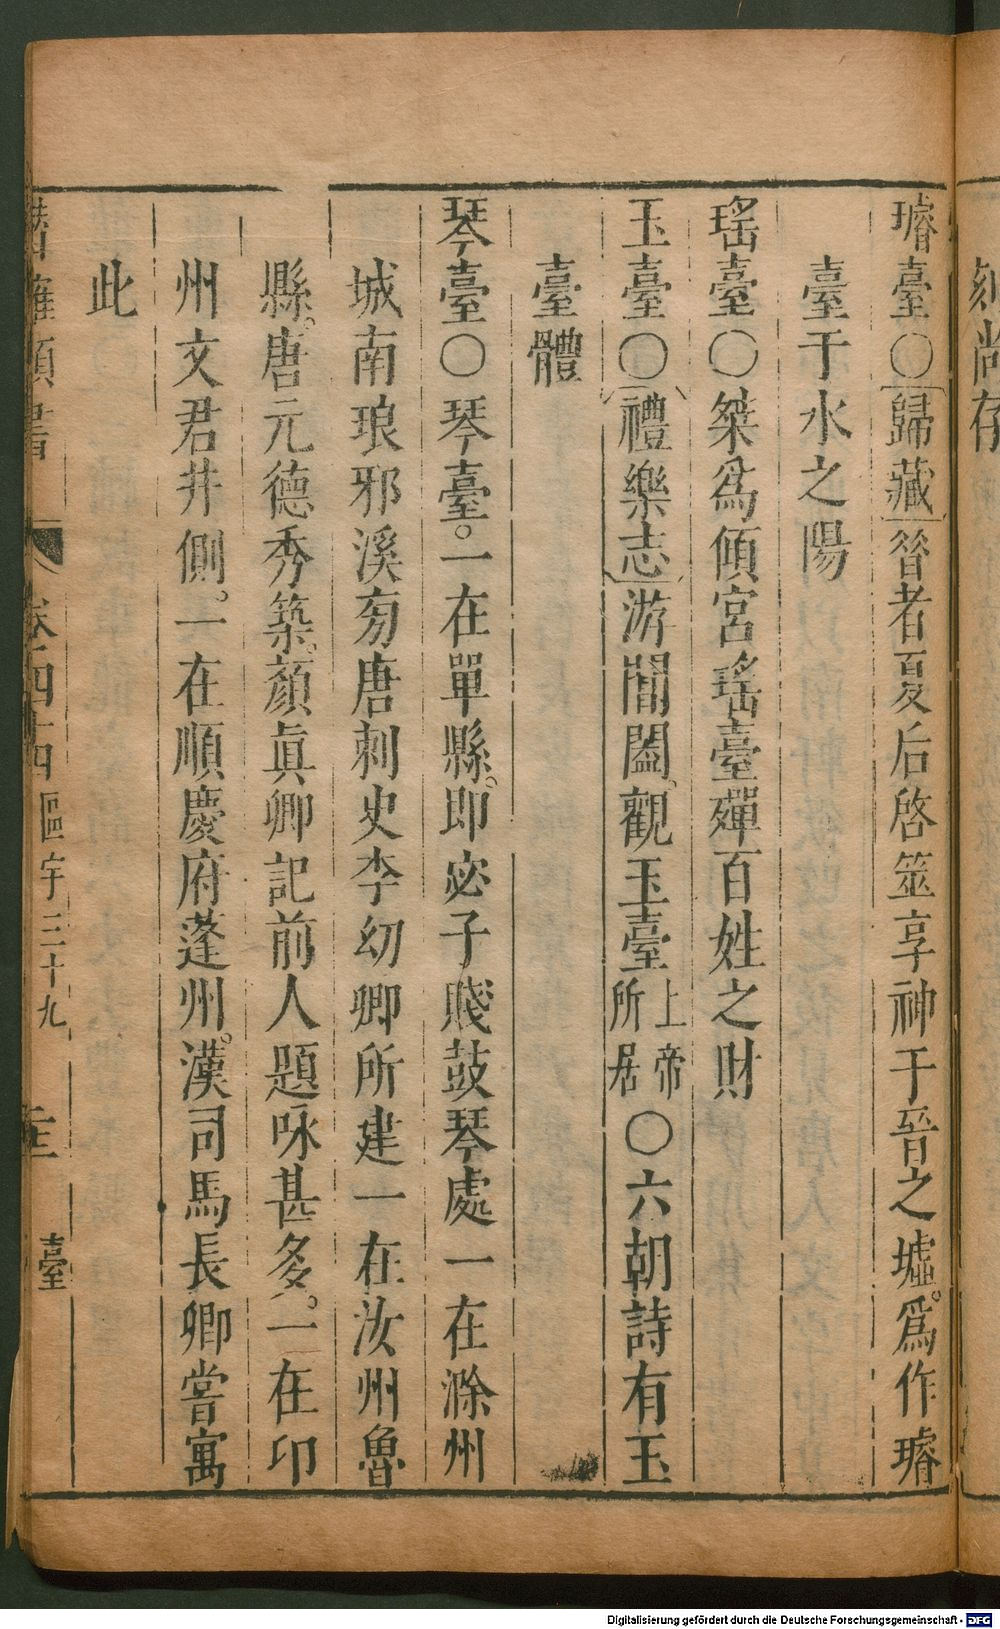 刻尚存
璿臺〇歸藏昔者夏后啓筮享神于晉之墟。爲作璿
臺于水之陽
瑤臺〇桀爲傾宮瑤臺殫百姓之財
玉臺〇禮樂志游閶闔。觀玉臺上帝所居〇六朝詩有玉
臺體
琴臺〇琴臺。一在單縣。即宓子賤鼓琴處一在滁州
城南琅邪溪旁唐刺史李幼卿所建一在汝州魯
縣。唐元德秀築。顏眞卿記前人題咏甚多。一在卭
州文君井側。一在順慶府蓬州。漢司馬長卿嘗寓
此
類書 卷之四十四 區宇三十九 臺
Digitalisierung gefördert durch die Deutsche Forschungsgemeinschaft - DFG